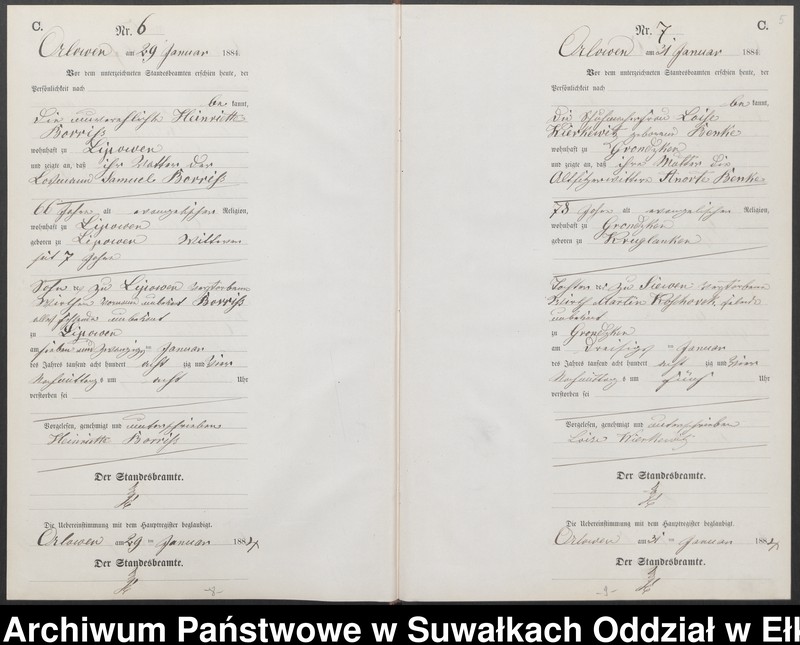 C.
Nr. 6
Orlowen am 29 Januar 1884.
Vor dem unterzeichneten Standesbeamten erschien heute, der
Persönlichkeit nach
be kannt,
die unverehlichte Heinriette
Borriß
wohnhaft zu Lipowen
und zeigte an, daß ihr Vatter der
Losmann Samuel Borriß
66 Jahre alt evangelischer Religion,
wohnhaft zu Lipowen
geboren zu Lipowen Wittwer
seit 7 Jahre
Sohn zu Lipowen verstorbene
unbekant Borriß
unbekant
zu Lipowen
am sieben und zwanzigsten Januar
des Jahres tausend acht hundert acht zig und vier
Nachmittag s um acht Uhr
verstorben sei
Vorgelesen, genehmigt und unterschrieben
Heinriette Borriß
Der Standesbeamte.
Die Uebereinstimmung mit dem Hauptregister beglaubigt.
Orlowen am 29 ten Januar 1884
Der Standesbeamte.
-8-
C.
5
Nr. 7
Orlowen am 31 Januar 1884.
Vor dem unterzeichneten Standesbeamten erschien heute, der
Persönlichkeit nach
be kannt,
die Loise
Kierkewitz geborene Benke
wohnhaft zu Grondzken
und zeigte an, daß ihre Mutter die
Altsitzerwittwe Anorte Benke
78 Jahre alt evangelischer Religion,
wohnhaft zu Grondzken
geboren zu Kruglanken
Tochter zu Siewen verstorbene
Wirth Martin
unbekant
zu Grondzken
am Dreißigsten Januar
des Jahres tausend acht hundert acht zig und vier
Nachmittag s um fünf Uhr
verstorben sei
Vorgelesen, genehmigt und unterschrieben
Loise Wierkewitz
Der Standesbeamte.
Die Uebereinstimmung mit dem Hauptregister beglaubigt.
Orlowen am 31 ten Januar 1884
Der Standesbeamte.
-9-
Archiwum Państwowe w Suwałkach Oddział w Ełk